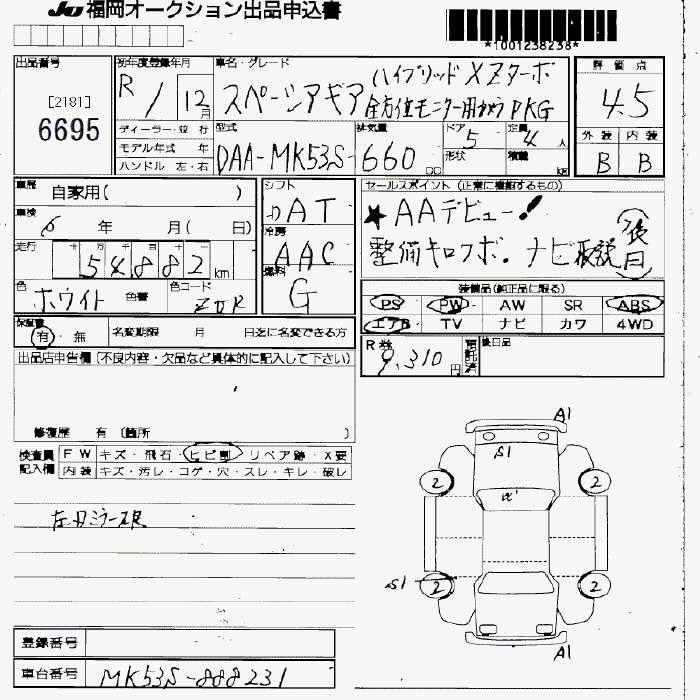 JU 福岡オークション出品申込書
*1001238238*
出品番号
[2181]
6695
初年度登録年月
R 1 12 月
車名・グレード
ハイブリッド XZターボ
スペーシアギア 全方位モニター用カメラPKG
評価点
4.5
外装 内装
B B
ディーラー・並行
モデル年式 年
ハンドル 左・右
型式
DAA-MK53S-
排気量
660 cc
ドア 5
形状
定員 4 人
積載 kg
車歴 自家用( )
車検 6 年 月( 日)
走行 十万 万 千 百 十 一
54882 km
色 ホワイト 色替
色コード ZVR
シフト
AT
冷房
AAC
燃料
G
セールスポイント (正常に機能するもの)
★AAデビュー!
整備キロクボ. ナビ取説 (後日)
装備品(純正品に限る)
PS PW AW SR ABS
エアB TV ナビ カワ 4WD
保証書 有・無
名変期限 月 日迄に名変できる方
R券 9,310 円
預託済
後日品
出品店申告欄 (不良内容・欠品など具体的に記入して下さい)
修復歴 有 (箇所 )
検査員記入欄
FW キズ・飛石・ヒビ割・リペア跡・X要
内装 キズ・汚レ・コゲ・穴・スレ・キレ・破レ
A1
S1
2 2
S1
2 2
A1
登録番号
車台番号 MK53S-888231